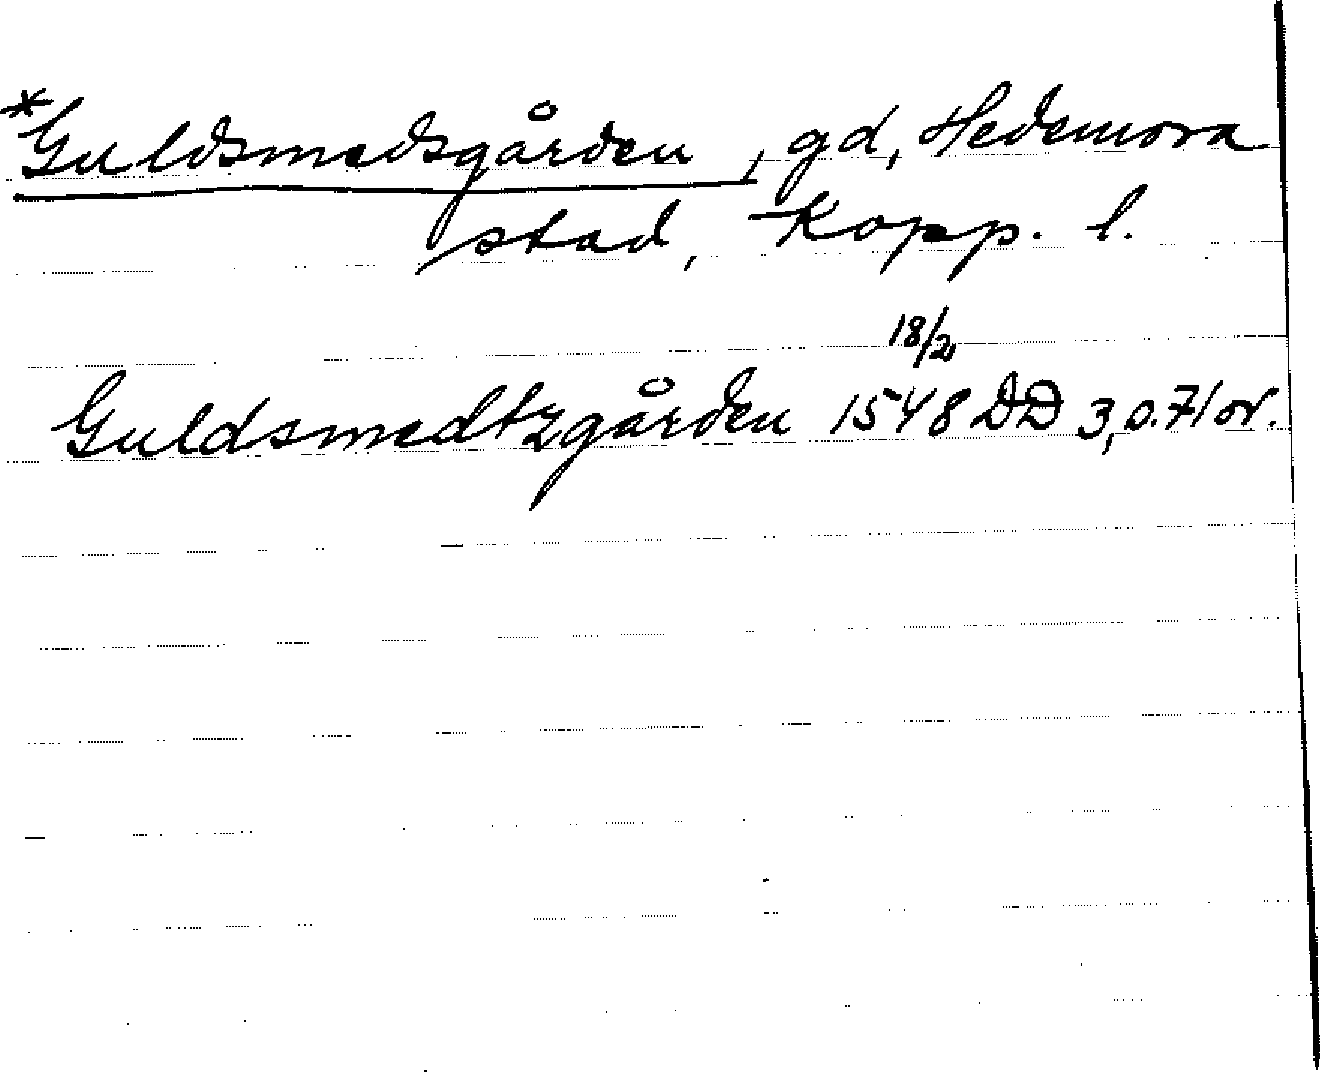 *Guldsmedsgården, gd, Hedemora
stad, Kopp. l.
18/2
Guldsmedtzgården 1548 DD 3, s. 71 or.